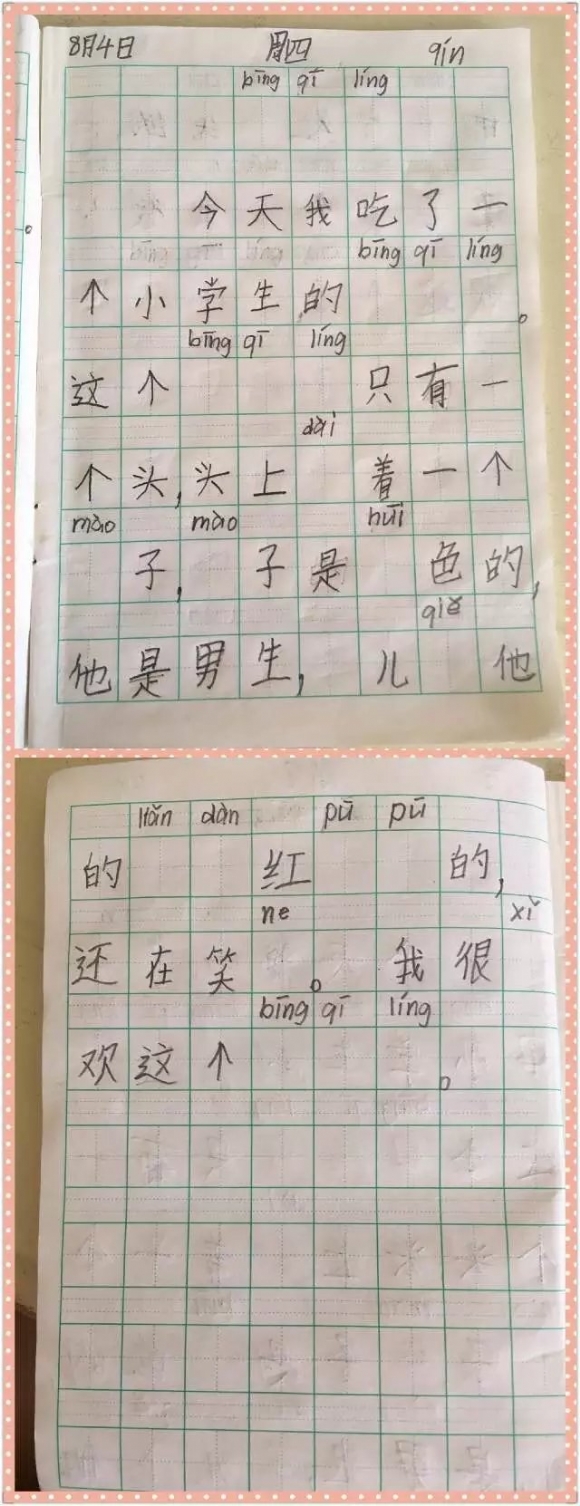 8月4日 周四 qín
bīng qī líng
今天我吃了一
bīng qī líng
个小学生的。
bīng qī líng
这个 只有一
dài
个头,头上 着一个
mào mào huī
子, 子是 色的,
qiě
他是男生, 儿 他
liǎn dàn pū pū
的 红 的,
ne xǐ
还在笑 。我很
bīng qī líng
欢这个 。